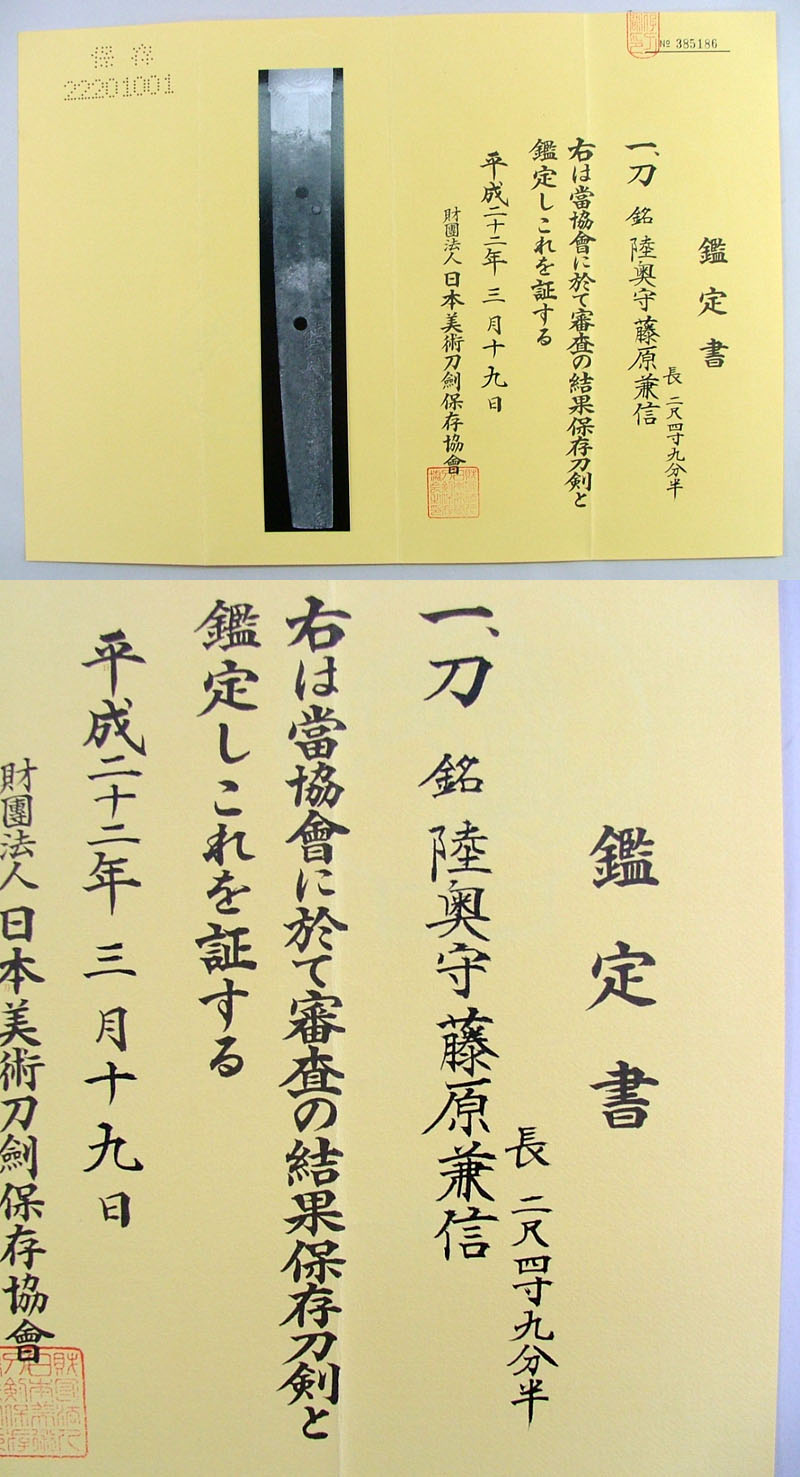 保存
22201001
№ 385186
鑑定書
一、刀 銘 陸奥守藤原兼信
長 二尺四寸九分半
右は當協會に於て審査の結果保存刀剣と
鑑定しこれを証する
平成二十二年 三月十九日
財團法人 日本美術刀劍保存協會
鑑定書
一、刀 銘 陸奥守藤原兼信
長 二尺四寸九分半
右は當協會に於て審査の結果保存刀剣と
鑑定しこれを証する
平成二十二年 三月十九日
財團法人 日本美術刀劍保存協會